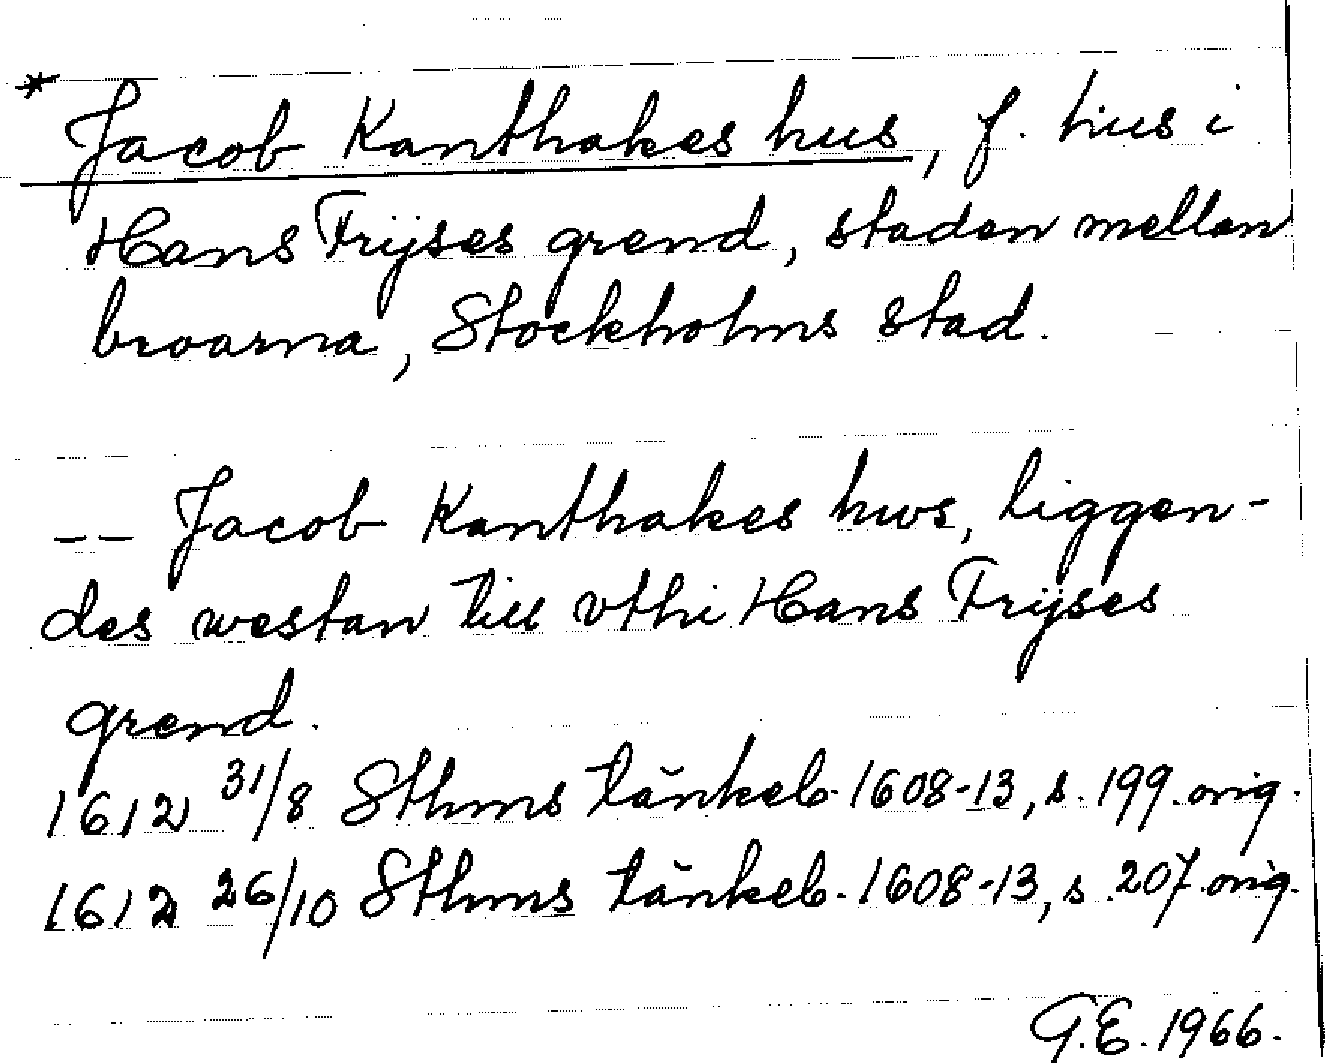 * Jacob Kanthakes hus, f. hus i
Hans Frijses grend, staden mellan
broarna, Stockholms stad.
-- Jacob Kanthakes hws, liggen-
des westan till vthi Hans Frijses
grend.
1612 31/8 Sthms tänkeb. 1608-13, s. 199. orig.
1612 26/10 Sthms tänkeb. 1608-13, s. 207. orig.
G.E. 1966.